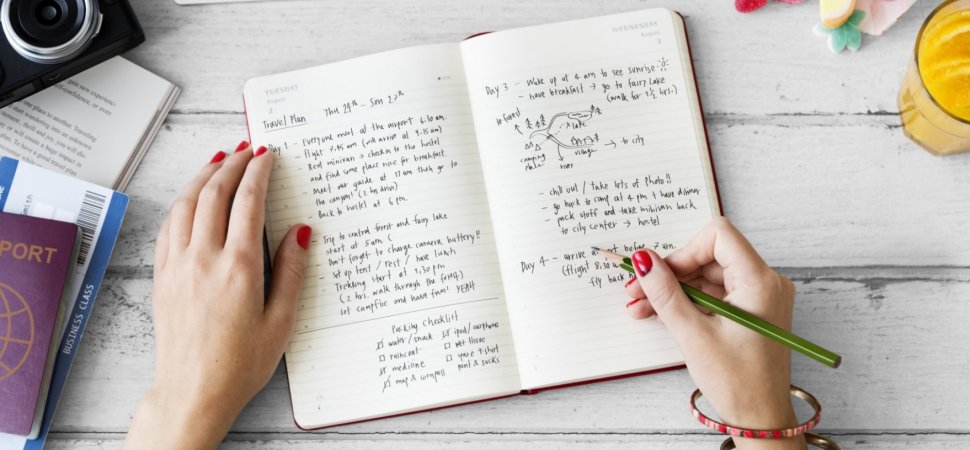 TUESDAY
August
2
Travel Plan Thu 24th - Sun 27th
Day 1 - Everyone meet at the airport 6.30 am.
- Flight 7.45 am (will arrive at 9.15 am)
- Rent minivan → check in to the hostel
and find some place nice for breakfast.
- Meet our guide at 11 am then go to
the canyon! (2 hrs drive)
- Back to hostel at 6 pm.
- Trip to central forest and fairy lake
start at 5 am
- Don't forget to charge camera battery!!
- Set up tent / rest / have lunch
- Trekking start at 1.30 pm
(2 hrs. walk through the forest)
- set campfire and have fun! YEAH
Packing Checklist
water / snack
raincoat
medicine
map & compass
ipod / earphone
wet tissue
spare t-shirt
pant & socks
WEDNESDAY
August
3
Day 3 - Wake up at 4 am to see sunrise
- have breakfast → go to fairy lake
(walk for 1 1/2 hrs.)
to forest
lake
camping
village
→ to city
- chill out / take lots of photo!!
- go back to camp at 4 pm + have dinner
- pack stuff and take minivan back
to city center → hostel
Day 4 - arrive at before 7 am.
(flight 8.30
fly back
PORT
BUSINESS CLASS
new experien-
confidence.
place to another. Traveling